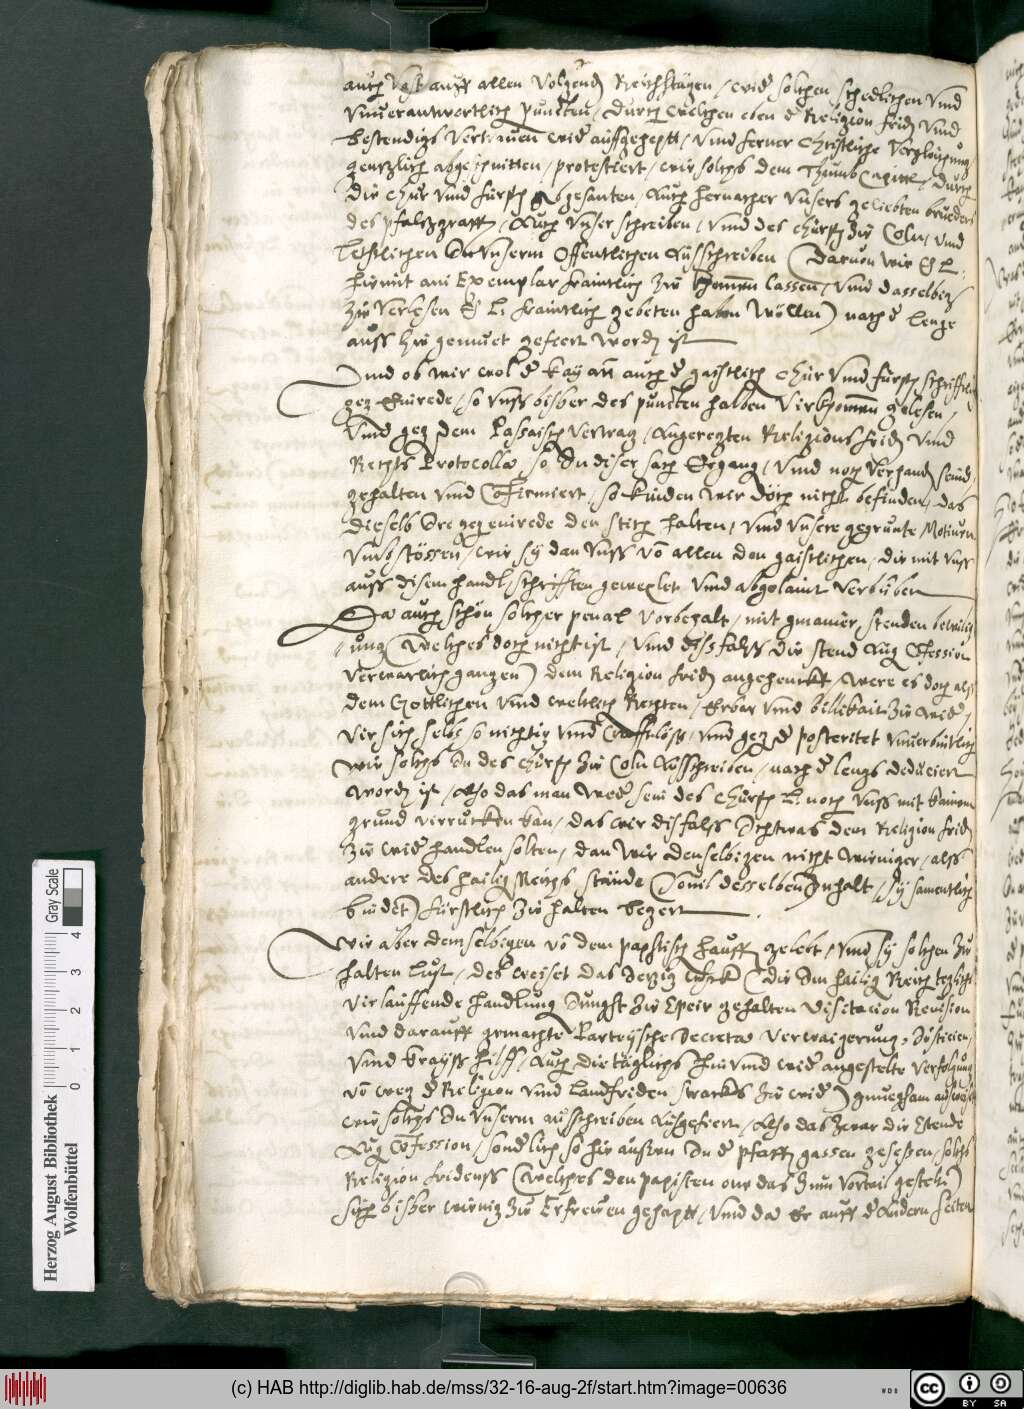 auch fast auff allen volgenden Reichsstägen, wider solchen schedlichen vnd
vnuerantwortlich puncten, durch welchen eben der Religion friden vnd
bestendigs vertrauen wider auffgehept, vnd ferner christliche vergleichung
gentzlich abgeschnitten, protestiert, wir solchs dem Thumb Capittel, durch
die Chur vnd fürstlich Abgesanten, Auch hernacher vnsers geliebten brueders
des pfaltzgraffen, Auch vnser schreiben, vnd des Churf. zu Coln, vnd
letstlichen In vnserm Offentlichen Außschreiben (Daruon wir E L.
hiemit ain Exemplar frainttlich zu khommen lassen, vnd dasselbig
zu verlesen E. L. frainttlich gebeten haben wöllen) nach der lenge
auss zu gemuet gefiert worden ist
Vnd ob wir wol der kay an auch der gaistlich Chur vnd fürsten schrifftlich
gegenrede, so vnss bisher des puncten halben virkhommen gelesen,
Vnd gegen dem Passaisch vertrag, Angeregten Religions friden vnd
Rechts Protocolla, so In diser sach Ergang, vnd noch verhanden seind,
gehalten vnd Confirmiert, so kinden wir doch nicht befinden, das
dieselb Ire gegenrede den stich halten, vnd vnsere gegrunte Motiuen
vmbstössen, wie sy dan vnss von allen den gaistlichen, die mit vnss
auss disem handl, schrifften gewexlet vnd abgelaint verbliben
Da auch schon solcher penal vorbehalt, mit gmainer stenden bewillig
ung (welches doch nicht ist, vnd dissfalss die stend Aug Confession
verwarlich ganzen) dem Religion friden angehenckt, were es doch alss
dem Göttlichen vnd weltlich Rechten, Erbar vnd billikait zu wider,
vir sich selbs so nichtig vnd Crafftloss, vnd gegen der posteritet vnuerbintlich
wie solchs In des Churf. zu Coln Außschreiben, nach der lengs deduciert
worden ist, Also das man weder sein des Churf. L. noch vnss mit kainem
grund virrucken kan, das wir dissfalss Ichtwas dem Religion friden
zu wider handlen solten, dan wir denselbigen nicht weniger, alss
andere des hailig Reichs stände (Souil desselben Inhalt, sy samentlich
bindet) fürstlich zu halten begert
Wie aber demselbigen von dem papstisch hauffen gelebt, vnd sy solchen zu
halten lust, des weiset das Jetzig Werk (die Im hailig Reich teglich
virlauffende handlung Jungst zu Speir gehalten visitacion Reuision
vnd darauff gemachte Parteysche Decreta verwaigerung, Justicien,
vnd krayss hilff, Auch die täglichs hin vnd wider angestelte verfolgung
von weg der Religion vnd Landfriden stracks zu wider) gnuegsam ausweiset
wie solchs In vnserm außschreiben Außgefiert, Also das zwar die Stende
Aug Confession, sonderlich so hie aussen In der pfaffen gassen gesessen, solchs
Religion fridenss (welches den papisten nur das zum vorteil gestelt)
sich bisher wenig zu Erfreuen gehapt, vnd da Er auff der Andern seiten
Gray Scale
Herzog August Bibliothek
Wolfenbüttel
0 1 2 3 4
(c) HAB http://diglib.hab.de/mss/32-16-aug-2f/start.htm?image=00636
WDB
CC BY SA